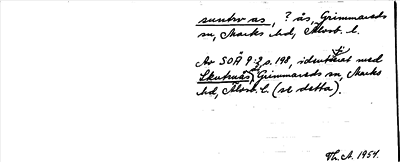 sunhv as, ? ås, Grimmareds
sn, Marks hd, Älvsb. l.
Av SOÄ 9:2 s. 198, identiskt med
Skutnås, Grimmareds sn, Marks
hd, Älvsb. l. (se detta).
Th. A. 1954.